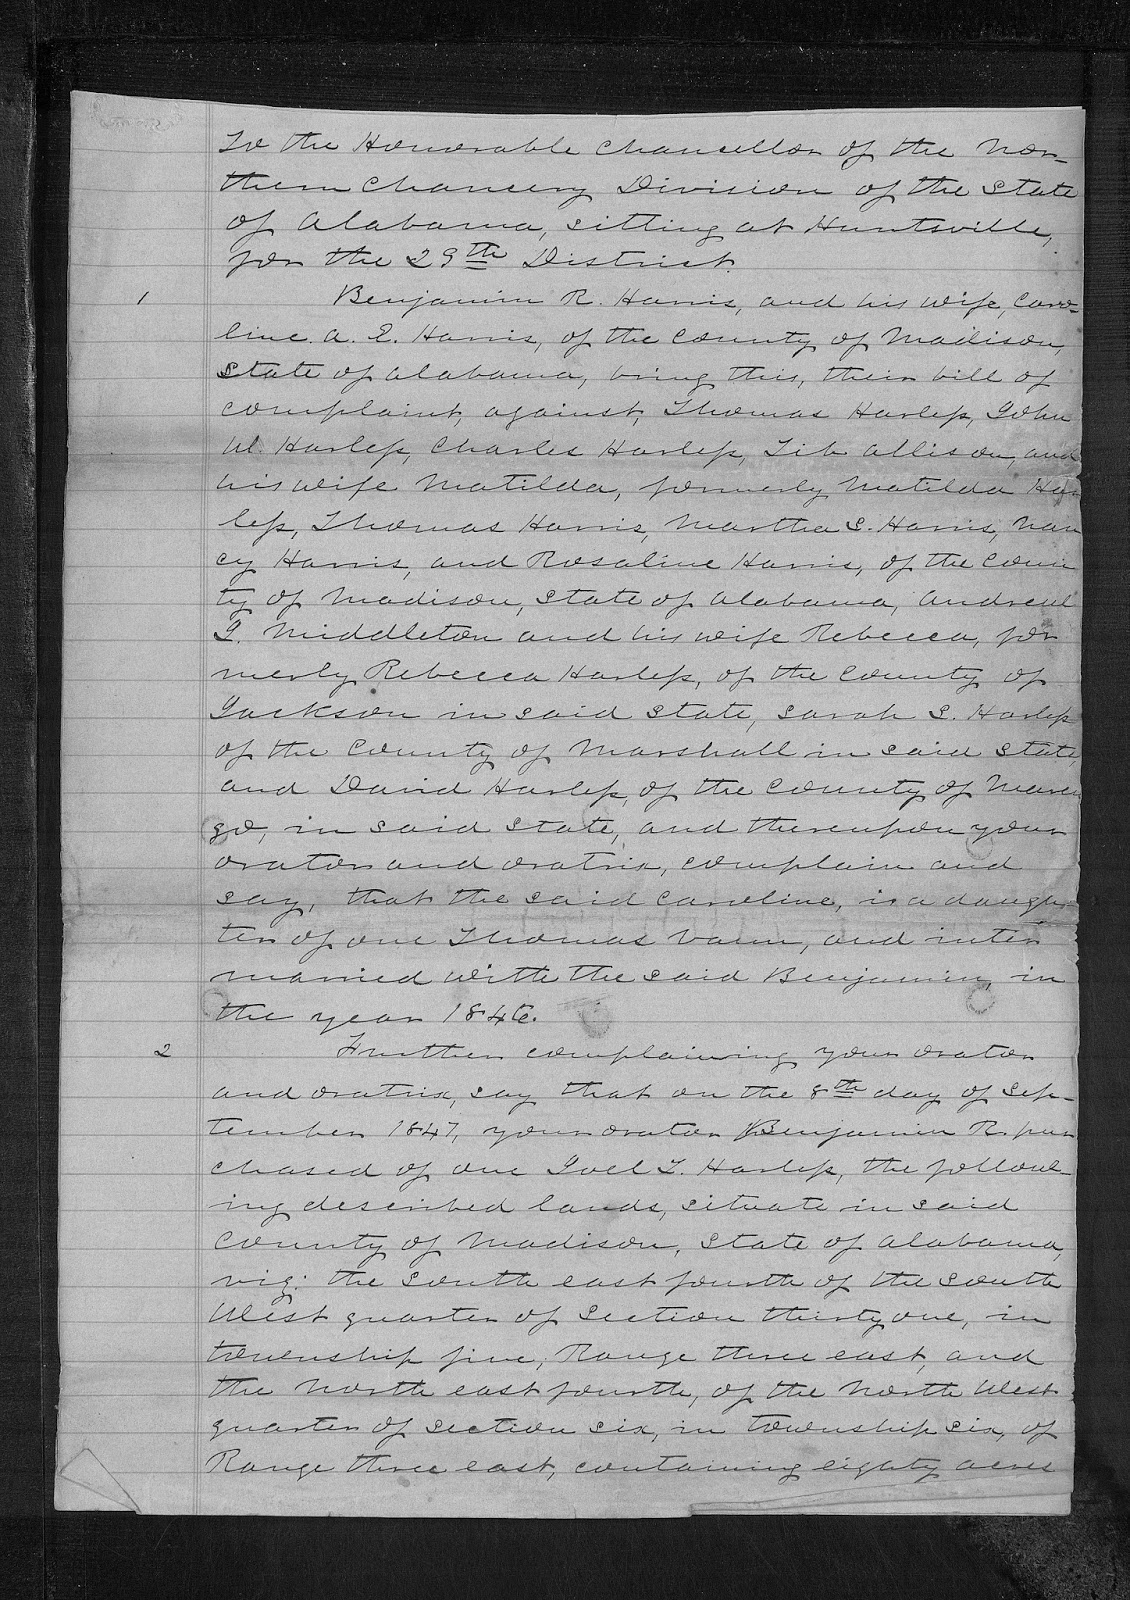 To the Honorable Chancellor of the Nor-
thern Chancery Division of the State
of Alabama, sitting at Huntsville,
for the 29th District.
1 Benjamin R. Harris, and his wife, Caro-
line A. E. Harris, of the County of Madison,
State of Alabama, bring this, their bill of
complaint, against, Thomas Harless, John
W. Harless, Charles Harless, Allison, and
his wife Matilda, formerly Matilda Har
less, Thomas Harris, Martha S. Harris, Nan
cy Harris, and Rosaline Harris, of the Coun
ty of Madison, State of Alabama, Andrew
G. Middleton and his wife Rebecca, for
merly Rebecca Harless, of the County of
Jackson in said State, Sarah S. Harless
of the County of Marshall in said State,
and David Harless, of the County of Maren
go, in said State, and thereupon your
orator and oratrix, complain and
say, that the said Caroline, is a daugh
ter of one Thomas Vann, and inter
married with the said Benjamin, in
the year 1846.
2 Further complaining your orator
and oratrix, say that on the 8th day of Sep-
tember 1847, your orator Benjamin R. pur
chased of one Joel T. Harless, the follow-
ing described lands, situate in said
County of Madison, State of Alabama,
viz: the South east fourth of the South
West quarter of Section thirty one, in
township five, Range three east, and
the North east fourth, of the North West
quarter of Section six, in township six, of
Range three east, containing eighty acres